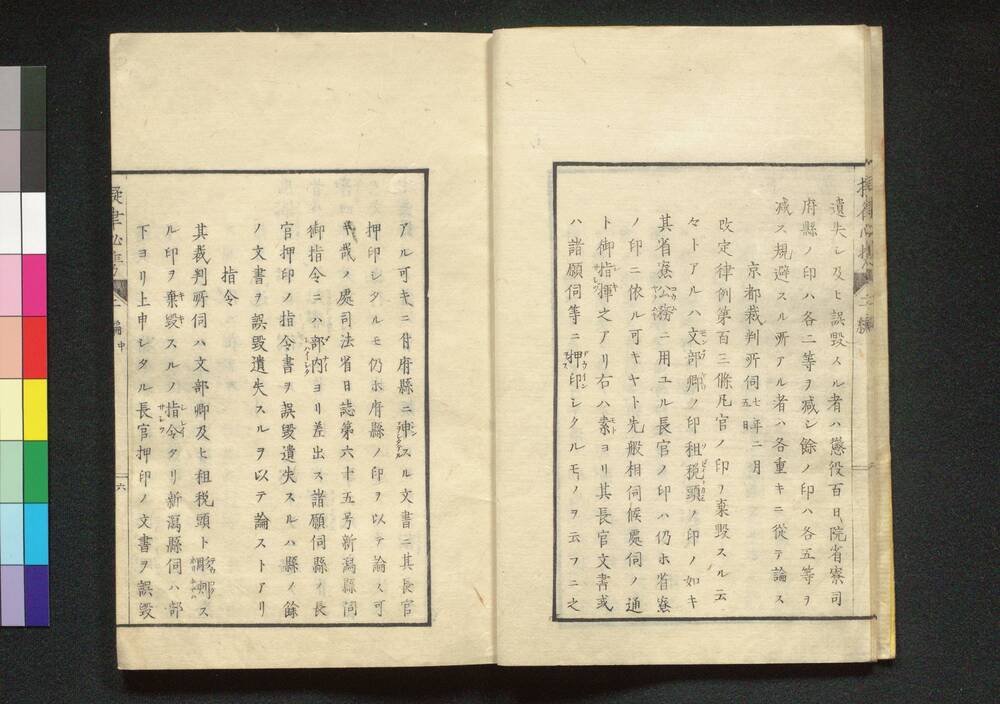 遺失シ及ヒ誤毀スル者ハ懲役百日院省寮司
府縣ノ印ハ各二等ヲ减シ餘ノ印ハ各五等ヲ
减ス規避スル所アル者ハ各重キニ從テ論ス
京都裁判所伺七年二月五日
改定律例第百三條凡官ノ印ヲ棄毀スル云
々トアルハ文部卿ノ印租税頭ノ印ノ如キ
其省寮公務ニ用ユル長官ノ印ハ仍ホ省寮
ノ印ニ依ル可キヤト先般相伺候處伺ノ通
ト御指揮之アリ右ハ素ヨリ其長官文書或
ハ諸願伺等ニ押印シタルモノヲ云フニ之
アル可キニ付府縣ニ申スル文書ニ其長官
押印シタルモ仍ホ府縣ノ印ヲ以テ論ス可
キ哉ノ處司法省日誌第六十五号新潟縣伺
御指令ニハ部内ヨリ差出ス諸願伺縣ノ長
官押印ノ指令書ヲ誤毀遺失スルハ縣ノ餘
ノ文書ヲ誤毀遺失スルヲ以テ論ストアリ
指令
其裁判所伺ハ文部卿及ヒ租税頭ト ス
ル印ヲ棄毀スルノ指令タリ新潟縣伺ハ部
下ヨリ上申シタル長官押印ノ文書ヲ誤毀
二編中
六